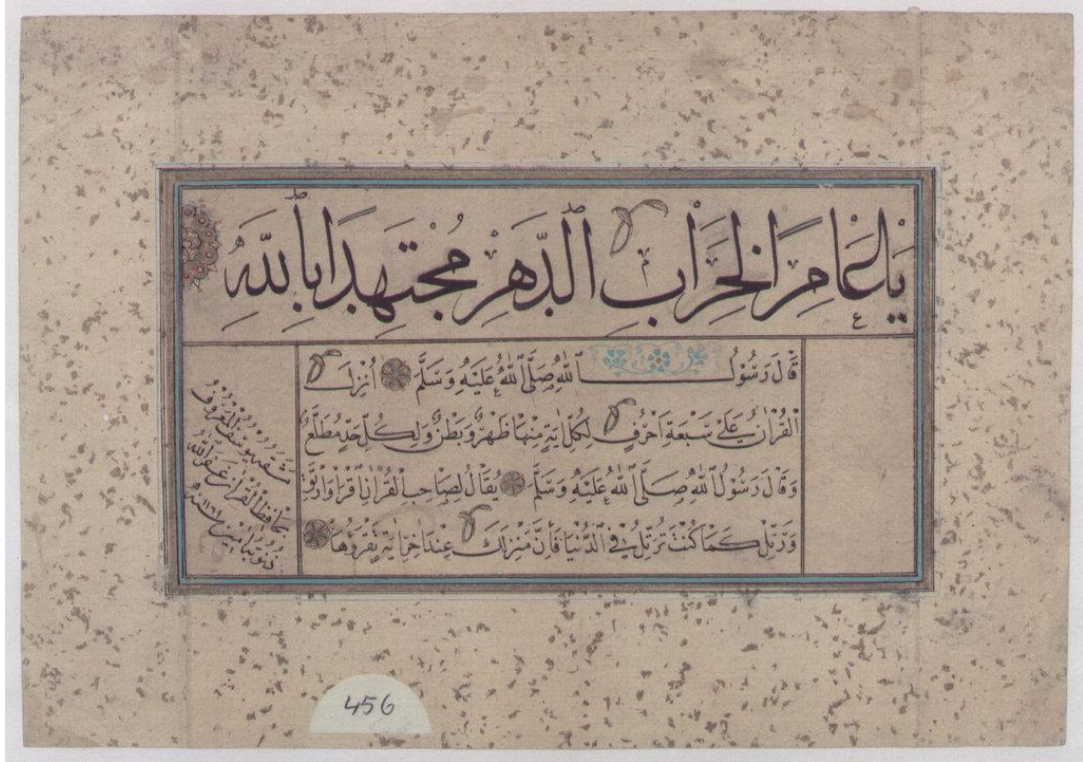 يَا عَامِرًا لِخَرَابِ الدَّهْرِ مُجْتَهِدًا بِاللّٰهِ
قَالَ رَسُولُ اللّٰهِ صَلَّى اللّٰهُ عَلَيْهِ وَسَلَّمَ اُنْزِلَ
الْقُرْاٰنُ عَلٰى سَبْعَةِ اَحْرُفٍ لِكُلِّ اٰيَةٍ مِنْهَا ظَهْرٌ وَبَطْنٌ وَلِكُلِّ حَدٍّ مُطَّلَعٌ
وَقَالَ رَسُولُ اللّٰهِ صَلَّى اللّٰهُ عَلَيْهِ وَسَلَّمَ يُقَالُ لِصَاحِبِ الْقُرْاٰنِ اقْرَاْ وَارْتَقِ
وَرَتِّلْ كَمَا كُنْتَ تُرَتِّلُ فِي الدُّنْيَا فَاِنَّ مَنْزِلَكَ عِنْدَ اٰخِرِ اٰيَةٍ تَقْرَؤُهَا
مشقه يوسف المعروف
بحافظ القران غفر الله
ذنوبه امين سنة ١١٦٩
456